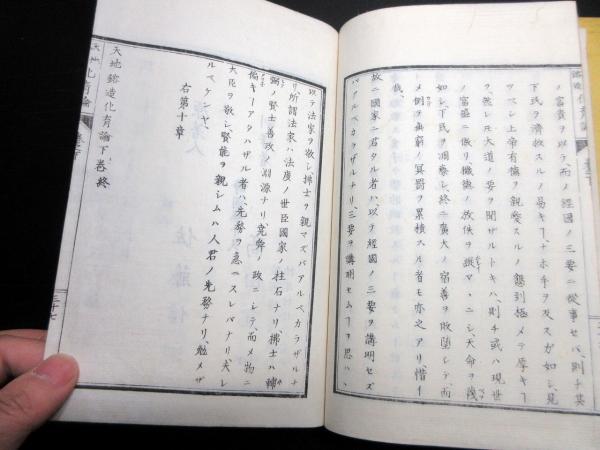 ノ富貴ヲ以テ、而ノ經國ノ三要ニ從事セバ、則チ其
下民ヲ濟救スルノ易キ┐、ナホ手ヲ反スガ如シ、見
ツベシ上帝有攜ヲ親愛スルノ懇到極メテ厚キ┐
ヲ、然レ𪜈大道ノ要ヲ聞ザルトキハ、則チ或ハ現世
ノ富盛ニ傲リ、
ニシ、天命ヲ
如シ、下民ヲ
シ、終ニ廣大ノ宿善ヲ敗堕シ、而
メ倒ヲ無窮ノ冥罰ヲ累積スル者モ亦之アリ、惜┐
哉、
故ニ國家ニ君タル者ハ、以テ經國ノ三要ヲ講明セズ
バアルベカラザルナリ、三要ヲ講明セム┐ヲ思ハヾ、
以テ法家ヲ敬シ、拂士ヲ親マズバアルベカラザルナ
リ、所謂法家ハ法度ノ世臣國家ノ柱石ナリ、拂士ハ輔
弼ノ賢士善政ノ淵源ナリ、
ノ政ニシテ、而メ物ニ
キ┐アタハザル者ハ、先務ヲ急ニスレバナリ、夫レ
大臣ヲ敬シ賢能ヲ親シムハ人君ノ先務ナリ、勉メザ
ルベケンヤ、
右第十章
天地鎔造化育論下卷終
天地
化育論
卷下
三十七